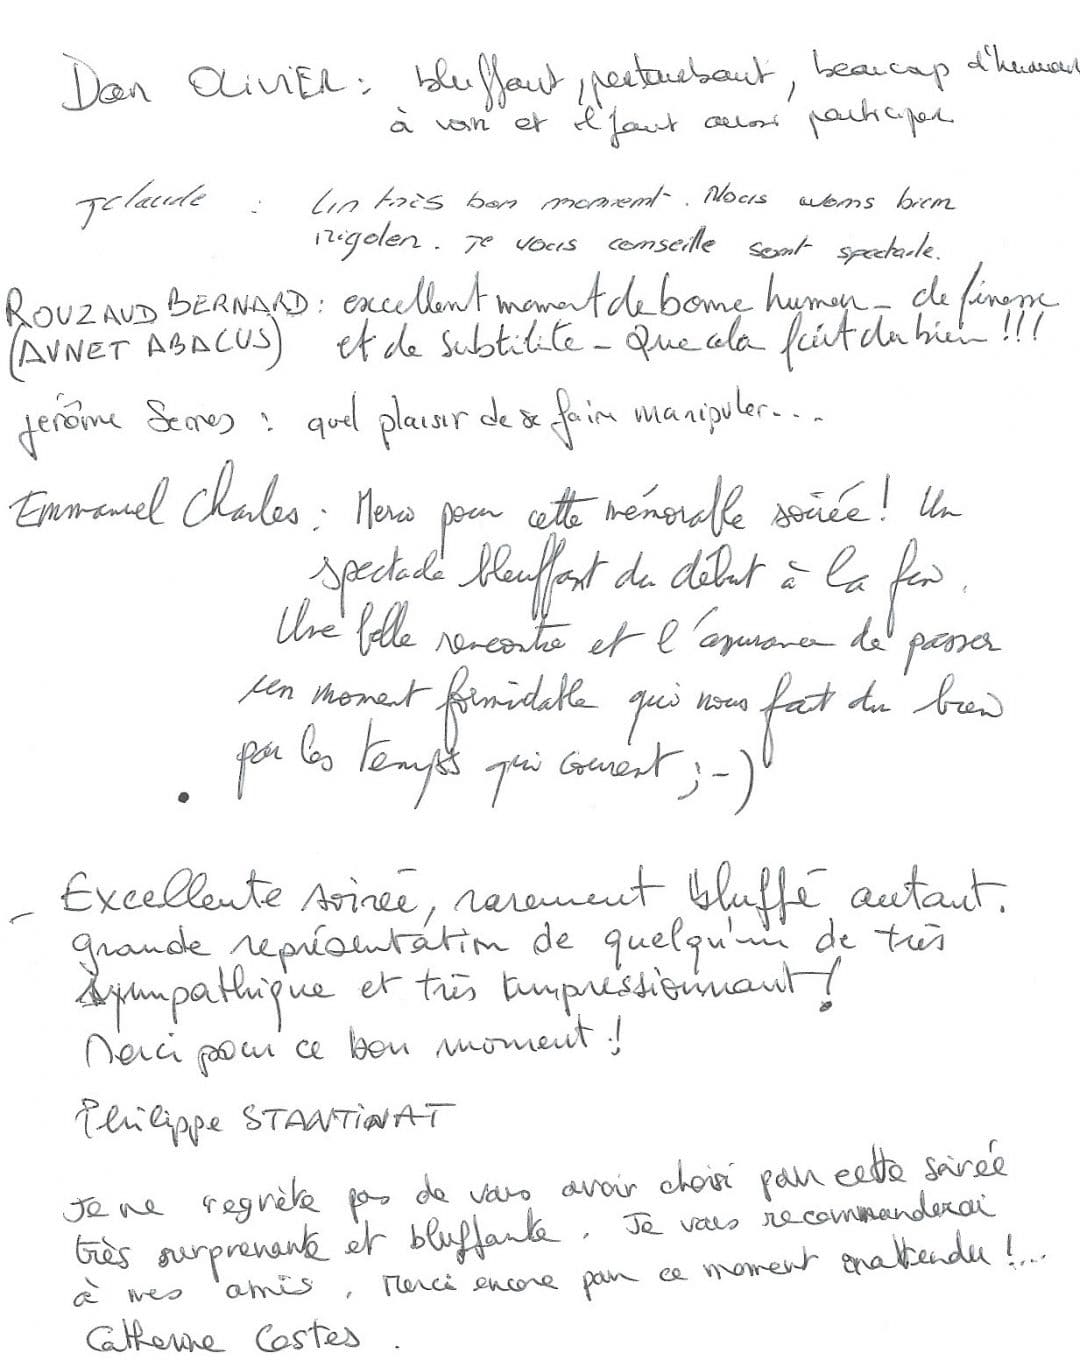 Dan OLIVIER : bluffant, perturbant, beaucoup d'humour
à voir et il faut aussi participer
JClaude : Un très bon moment. Nous avons bien
rigoler. Je vous conseille sont spectacle.
ROUZAUD BERNARD : excellent moment de bonne humeur - de finesse
(AVNET ABACUS) et de subtilité - Que cela fait du bien !!!
Jérôme Serres : quel plaisir de se faire manipuler....
Emmanuel Charles : Merci pour cette mémorable soirée ! Un
spectacle bleuffant du début à la fin.
Une belle rencontre et l'assurance de passer
un moment formidable qui nous fait du bien
par les temps qui courent ;-)
- Excellente soirée, rarement bluffé autant.
Grande représentation de quelqu'un de très
sympathique et très impressionnant !
Merci pour ce bon moment !
Philippe STANTINAT
Je ne regrète pas de vous avoir choisi pour cette soirée
très surprenante et bluffante. Je vous recommanderai
à mes amis. Merci encore pour ce moment inattendu !...
Catherine Costes.